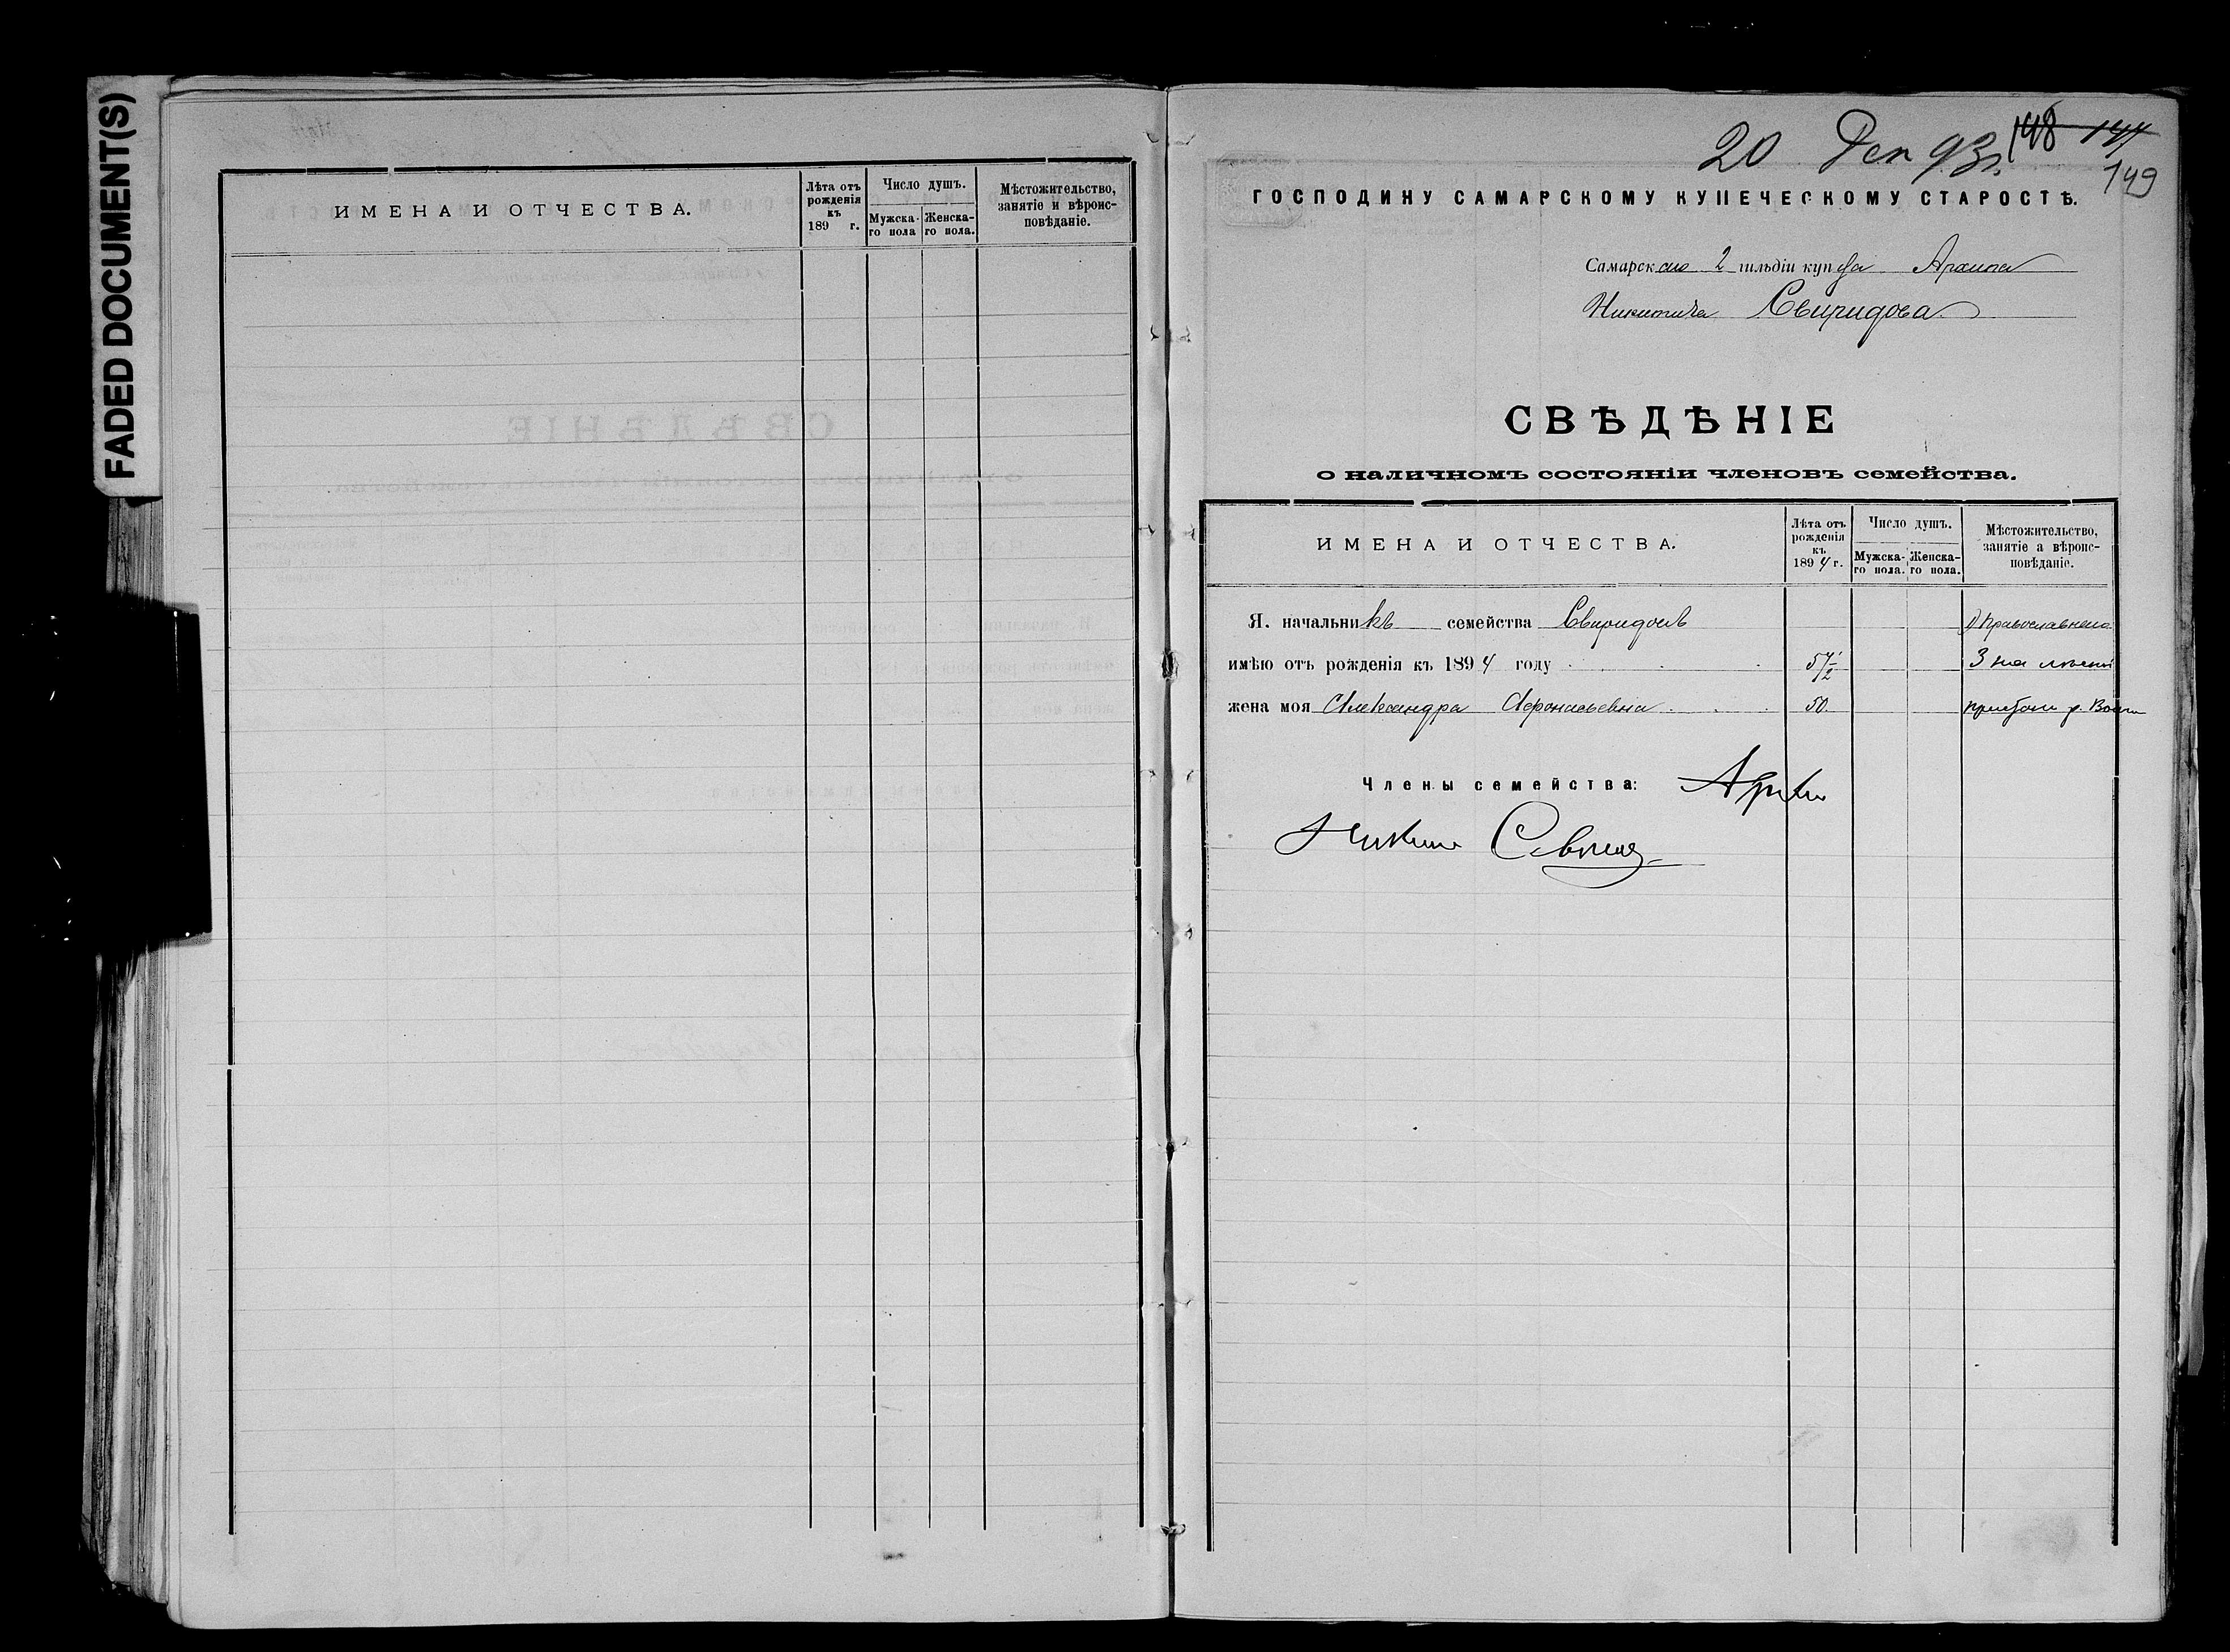 FADED DOCUMENT(S)
ИМЕНА И ОТЧЕСТВА.
Лѣта отъ рожденія къ 189 г.
Число душъ.
Мужска-го пола
Женска-го пола.
Мѣстожительство, занятіе и вѣроис-повѣданіе.
20 Дек 93 г. 148 144
149
ГОСПОДИНУ САМАРСКОМУ КУПЕЧЕСКОМУ СТАРОСТѢ.
Самарскаго 2 гильдіи купца Архипа
Никитича Свиридова
СВѢДѢНІЕ
о наличномъ состояніи членовъ семейства.
ИМЕНА И ОТЧЕСТВА.
Лѣта отъ рожденія къ 1894 г.
Число душъ.
Мужска-го пола.
Женска-го пола.
Мѣстожительство, занятіе а вѣроис-повѣданіе.
Я. начальникъ семейства Свиридовъ
имѣю отъ рожденія къ 1894 году 57 1/2 3 на
жена моя Александра Афонасьевна 50.
Члены семейства: Архип
Никит Свирид